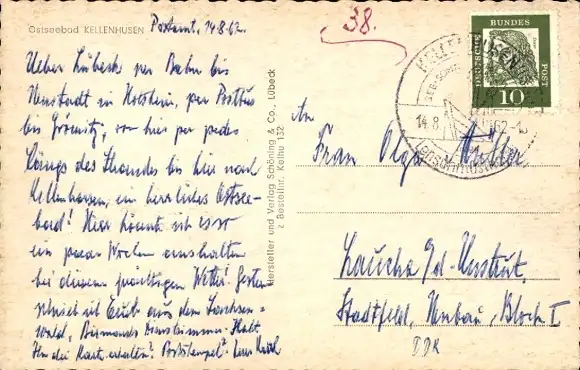 Ostseebad KELLENHUSEN
Postamt, 14.8.62.
38.
Ueber Lübeck per Bahn bis
Neustadt in Holstein, per Postbus
bis Grömitz, von hier per pedes
längs des Strandes bis hier nach
Kellenhusen, ein herrliches Ostsee-
bad! Hier könnte ich es so
ein paar Wochen aushalten
bei diesem Wetter! Gestern
schrieb ich Euch aus dem Sachsen-
wald, Bismarcks Habt
Ihr die Karte erhalten? Poststempel?
Hersteller und Verlag Schöning & Co., Lübeck
Bestellnr. Kelhu 132
DEUTSCHE
BUNDES
POST
10
14.8.
62-1
An
Frau Olga Müller
Laucha a/d. Unstrut
Stadtfeld, Neubau, Block I
DDR